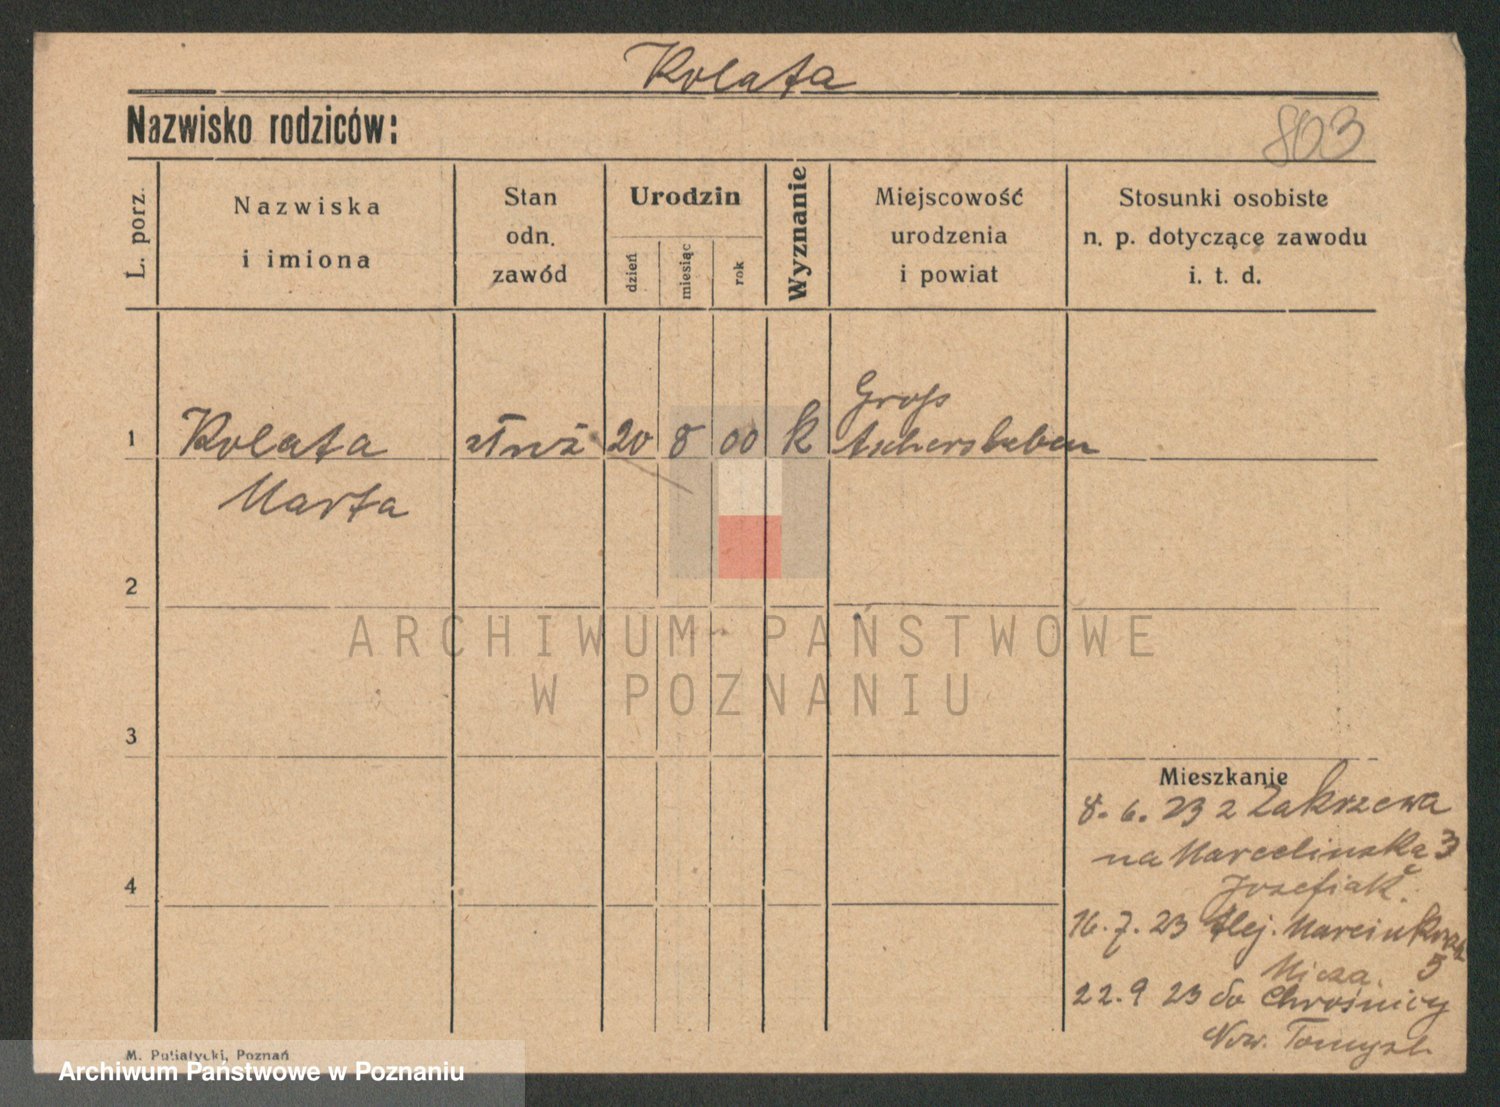 Kolata
Nazwisko rodziców:
803
L. porz.
Nazwiska
i imiona
Stan
odn.
zawód
Urodzin
dzień
miesiąc
rok
Wyznanie
Miejscowość
urodzenia
i powiat
Stosunki osobiste
n. p. dotyczące zawodu
i. t. d.
1
Kolata
Marta
służ
20
8
00
k
Gross
Aschersleben
2
ARCHIWUM PAŃSTWOWE
W POZNANIU
3
4
Mieszkanie
8. 6. 23 z Zakrzewa
na Marcelińska 3
Józefiak.
16. 7. 23 Alej. Marcinkowsk
5
22. 9 23 do Chrośnicy
Now. Tomysl.
M. Putiatycki, Poznań
Archiwum Państwowe w Poznaniu